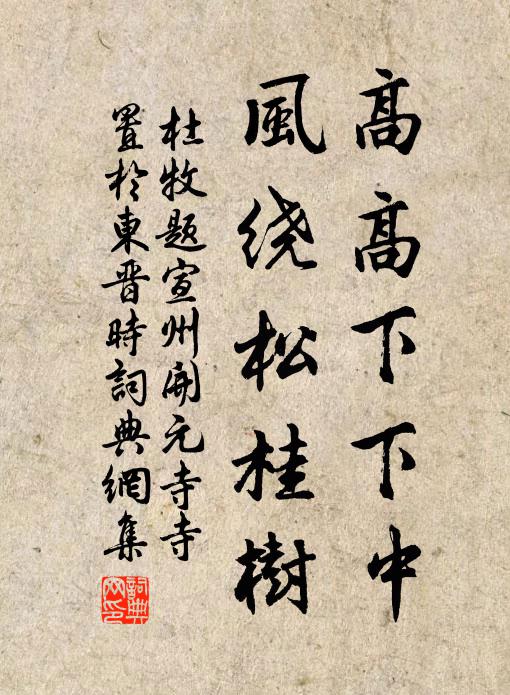 高高下下中
風绕松桂樹
杜牧題宣州開元寺寺
置於東晋時詞典網集
詞典网印